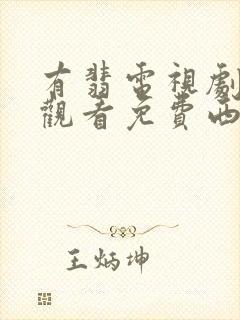 有翡電視劇
觀看免費西
王炳坤